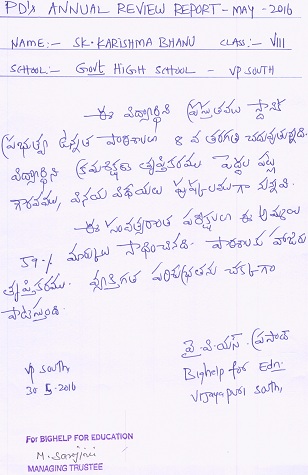 PD's ANNUAL REVIEW REPORT - MAY - 2016
NAME:- SK. KARISHMA BHANU CLASS:- VIII
SCHOOL:- Govt HIGH SCHOOL - VP SOUTH
ఈ విద్యార్థిని ప్రస్తుతము స్థానిక
ప్రభుత్వ ఉన్నత పాఠశాలలో 8 వ తరగతి చదువుతున్నది.
విద్యార్థిని క్రమశిక్షణ తృప్తికరము పెద్దల పట్ల
గౌరవము, వినయ విధేయతలు పుష్కలముగా ఉన్నవి.
ఈ సంవత్సరాంత పరీక్షలలో ఈ అమ్మాయి
59% మార్కులు సాధించినది. పాఠశాలకు హాజరు
తృప్తికరము. వ్యక్తిగత పరిశుభ్రతను చక్కగా
పాటిస్తుంది.
వై.వి.యస్. ప్రసాద్
Bighelp for Edn.
Vijayapuri South,
VP South
30 5-2016
For BIGHELP FOR EDUCATION
M. Sarojini
MANAGING TRUSTEE